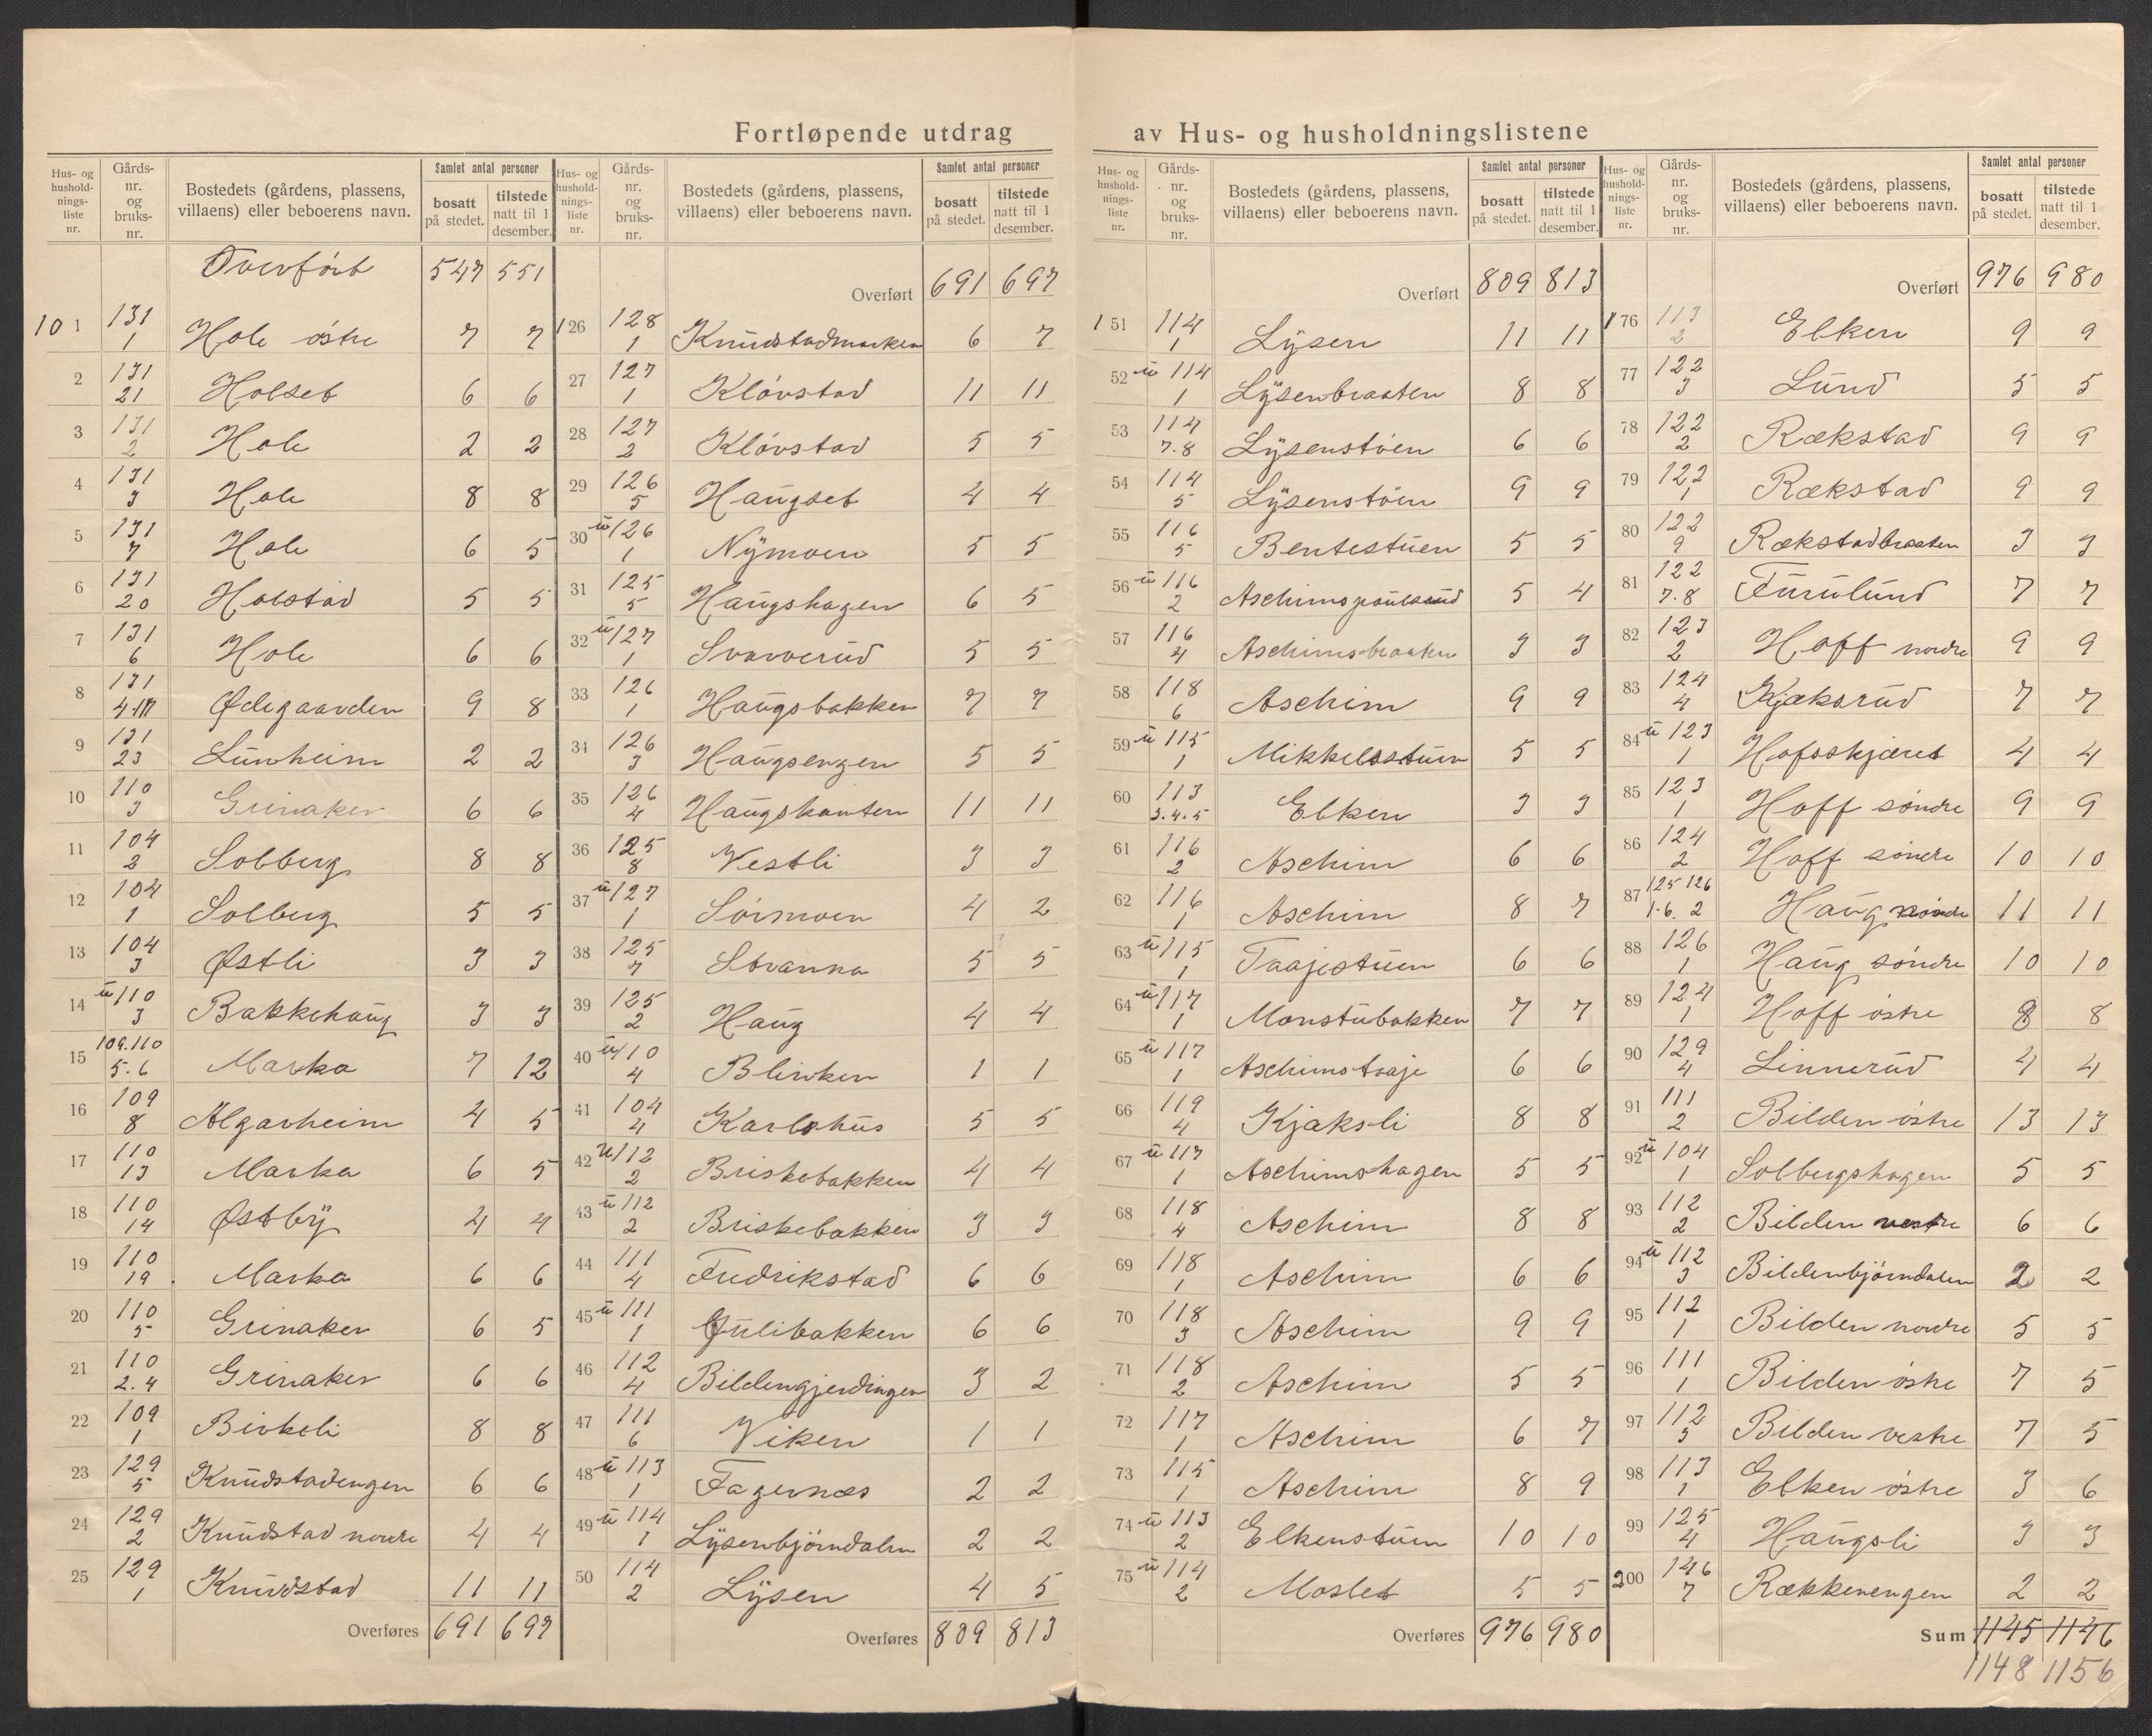 Fortløpende utdrag av Hus- og husholdningslistene
Hus- og husholdnings-liste nr. | Gårds-nr. og bruks-nr. | Bostedets (gårdens, plassens, villaens) eller beboerens navn. | Samlet antal personer | bosatt på stedet. | tilstede natt til 1 desember.
Overført 547 551
101 131/1 Hole østre 7 7
2 131/21 Holset 6 6
3 131/2 Hole 2 2
4 131/3 Hole 8 8
5 131/7 Hole 6 5
6 131/20 Holstad 5 5
7 131/6 Hole 6 6
8 131/ Ødegaarden 9 8
9 131/23 Lunheim 2 2
10 110/3 Grinaker 6 6
11 104/2 Solberg 8 8
12 104/1 Solberg 5 5
13 104/3 Østli 3 3
14 u 110/3 Bakkehaug 3 3
15 109.110/5.6 Marka 7 12
16 109/8 Algarheim 4 5
17 110/13 Marka 6 5
18 110/14 Østby 4 4
19 110/19 Marka 6 6
20 110/5 Grinaker 6 5
21 110/2.4 Grinaker 6 6
22 109/1 Birkeli 8 8
23 129/5 Knudstadengen 6 6
24 129/2 Knudstad nordre 4 4
25 129/1 Knudstad 11 11
Overføres 691 697
Hus- og husholdnings-liste nr. | Gårds-nr. og bruks-nr. | Bostedets (gårdens, plassens, villaens) eller beboerens navn. | Samlet antal personer | bosatt på stedet. | tilstede natt til 1 desember.
Overført 691 697
126 128/1 Knudstadmarken 6 7
27 127/1 Kløvstad 11 11
28 127/2 Kløvstad 5 5
29 126/5 Haugset 4 4
30 u 126/1 Nymoen 5 5
31 125/5 Haugshagen 6 5
32 u 127/1 Svarverud 5 5
33 126/1 Haugsbakken 7 7
34 126/3 Haugsengen 5 5
35 126/4 Haugskanten 11 11
36 125/8 Vestli 3 3
37 u 127/1 Sørmoen 4 2
38 125/7 Stranna 5 5
39 125/2 Haug 4 4
40 u 110/4 Blinken 1 1
41 104/4 Karlshus 5 5
42 u 112/2 Briskebakken 4 4
43 u 112/2 Briskebakken 3 3
44 111/4 Fredrikstad 6 6
45 u 111/1 Julibakken 6 6
46 112/4 Bildengjerdingen 3 2
47 111/6 Viken 1 1
48 u 113/1 Fagernæs 2 2
49 u 114/1 Lysenbjørndalen 2 2
50 114/2 Lysen 4 5
Overføres 809 813
Hus- og husholdnings-liste nr. | Gårds-nr. og bruks-nr. | Bostedets (gårdens, plassens, villaens) eller beboerens navn. | Samlet antal personer | bosatt på stedet. | tilstede natt til 1 desember.
Overført 809 813
151 114/1 Lysen 11 11
52 u 114/1 Lysenbraaten 8 8
53 114/7.8 Lysenstøen 6 6
54 114/5 Lysenstøen 9 9
55 116/5 Bentestuen 5 5
56 u 116/2 Aschimspoulsrud 5 4
57 116/4 Aschimsbraaten 3 3
58 118/6 Aschim 9 9
59 u 115/1 Mikkelsstuen 5 5
60 113/3.4.5 Elken 3 3
61 116/2 Aschim 6 6
62 116/1 Aschim 8 7
63 u 115/1 Taajestuen 6 6
64 u 117/1 Monstubakken 7 7
65 u 117/1 Aschimstaaje 6 6
66 119/4 Kjaksli 8 8
67 u 117/1 Aschimshagen 5 5
68 118/4 Aschim 8 8
69 118/1 Aschim 6 6
70 118/3 Aschim 9 9
71 118/2 Aschim 5 5
72 117/1 Aschim 6 7
73 115/1 Aschim 8 9
74 u 113/2 Elkenstuen 10 10
75 u 114/2 Moslet 5 5
Overføres 976 980
Hus- og husholdnings-liste nr. | Gårds-nr. og bruks-nr. | Bostedets (gårdens, plassens, villaens) eller beboerens navn. | Samlet antal personer | bosatt på stedet. | tilstede natt til 1 desember.
Overført 976 980
176 113/2 Elken 9 9
77 122/3 Lund 5 5
78 122/2 Rækstad 9 9
79 122/1 Rækstad 9 9
80 122/9 Rækstadbraaten 3 3
81 122/7.8 Furulund 7 7
82 123/2 Hoff nordre 9 9
83 124/4 Kjæksrud 7 7
84 u 123/1 Hofsskjæret 4 4
85 123/1 Hoff søndre 9 9
86 124/2 Hoff søndre 10 10
87 125 126/1.6. 2 Haug 11 11
88 126/1 Haug søndre 10 10
89 124/1 Hoff østre 8 8
90 129/4 Linnerud 4 4
91 111/2 Bilden østre 13 13
92 u 104/1 Solbergshagen 5 5
93 112/2 Bilden vestre 6 6
94 u 112/3 Bildenbjørndalen 2 2
95 112/1 Bilden nordre 5 5
96 111/1 Bilden østre 7 5
97 112/3 Bilden vestre 7 5
98 113/1 Elken østre 3 6
99 125/4 Haugsli 3 3
200 146/7 Rækkenengen 2 2
Sum 1145 1146
1148 1156